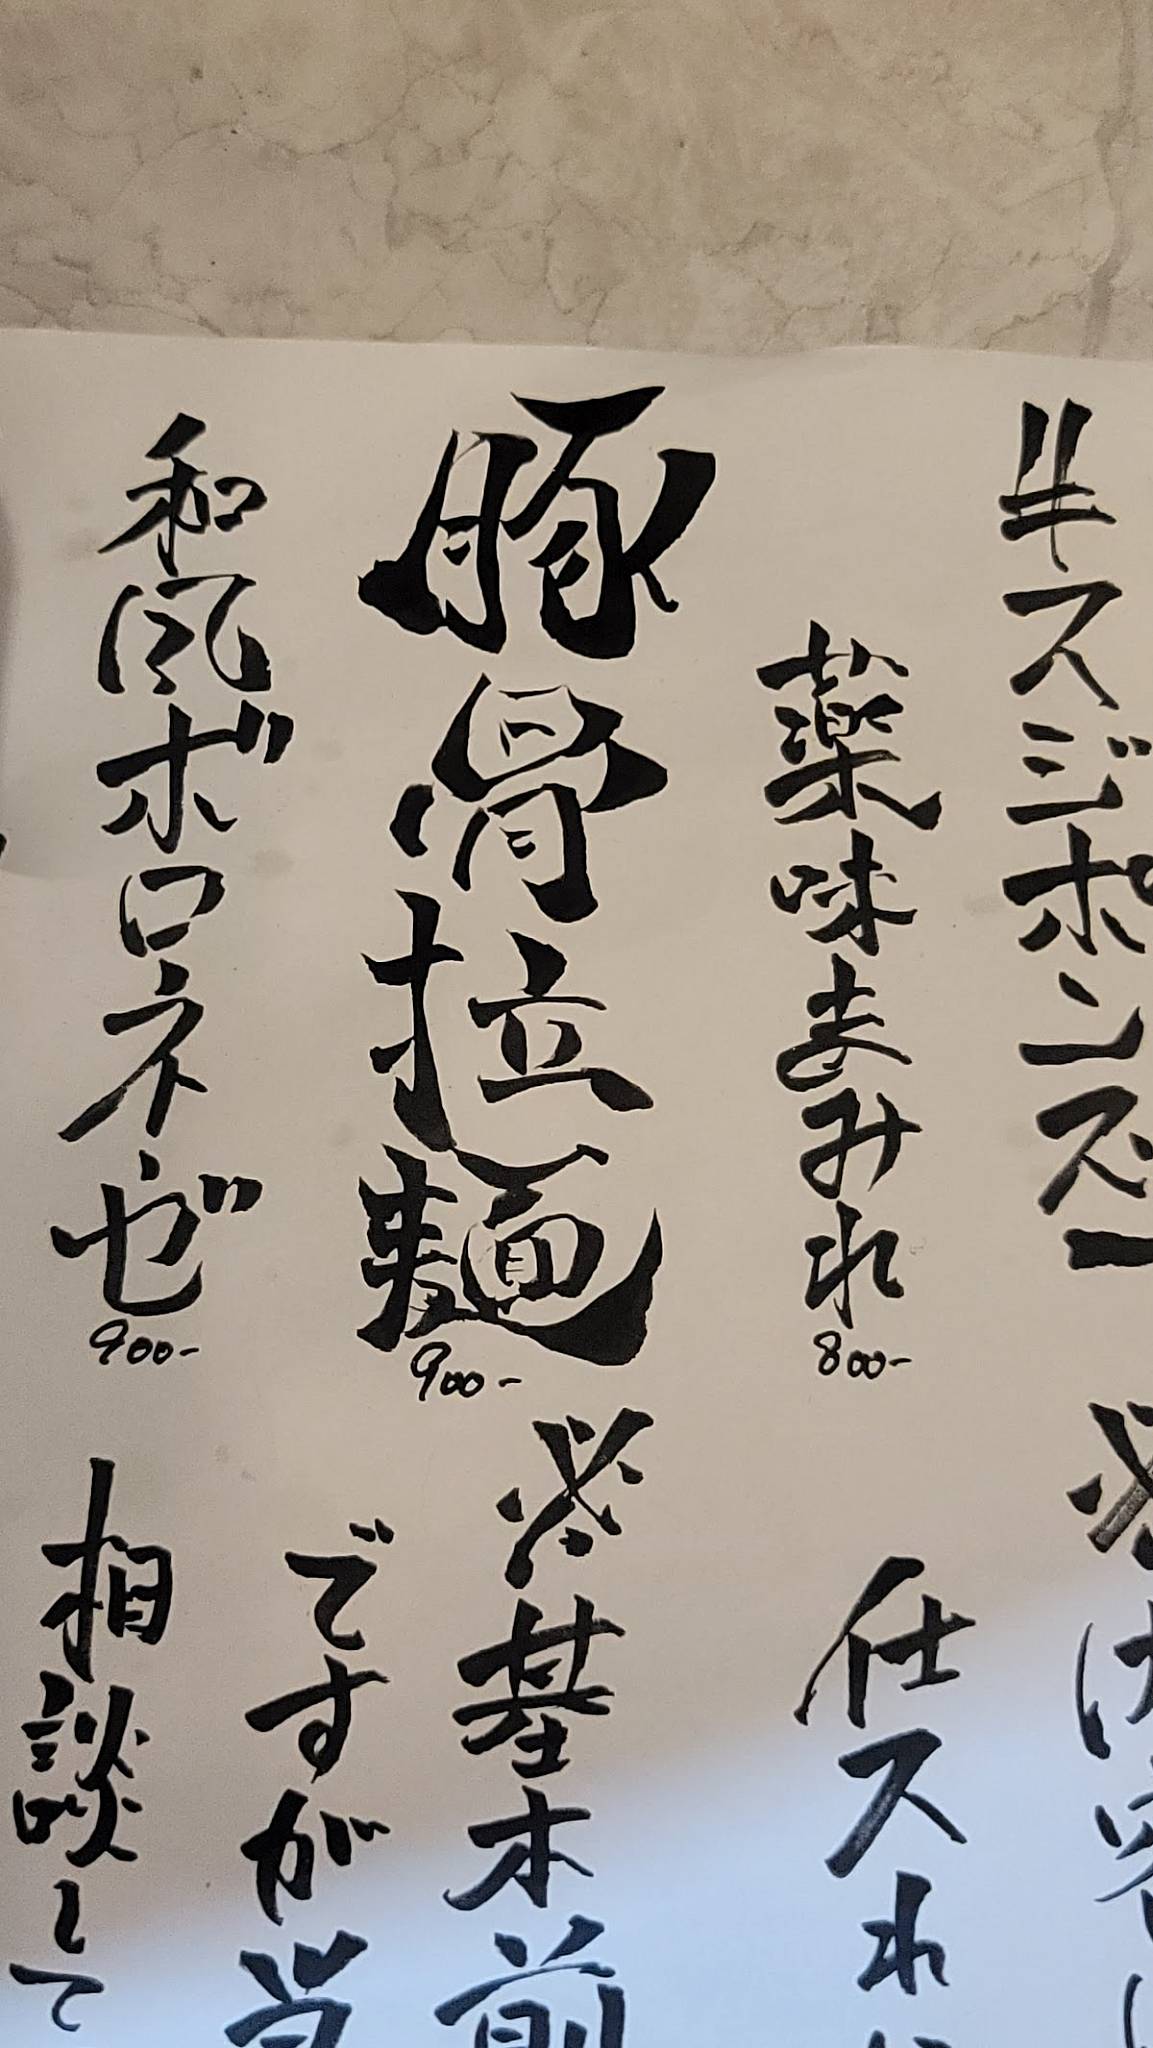 牛スジポンズー
薬味まみれ
800-
豚骨拉麺
900-
和風ボロネーゼ
900-
仕入れ
※基本前
ですが
相談して